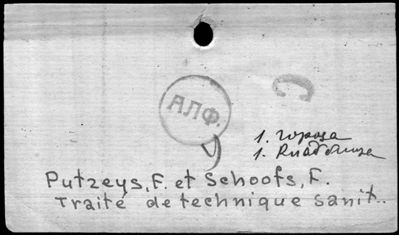 АЛФ.
С
1. города
1. Кладбища
Putzeys, F. et Schoofs, F.
Traité de technique sanit..